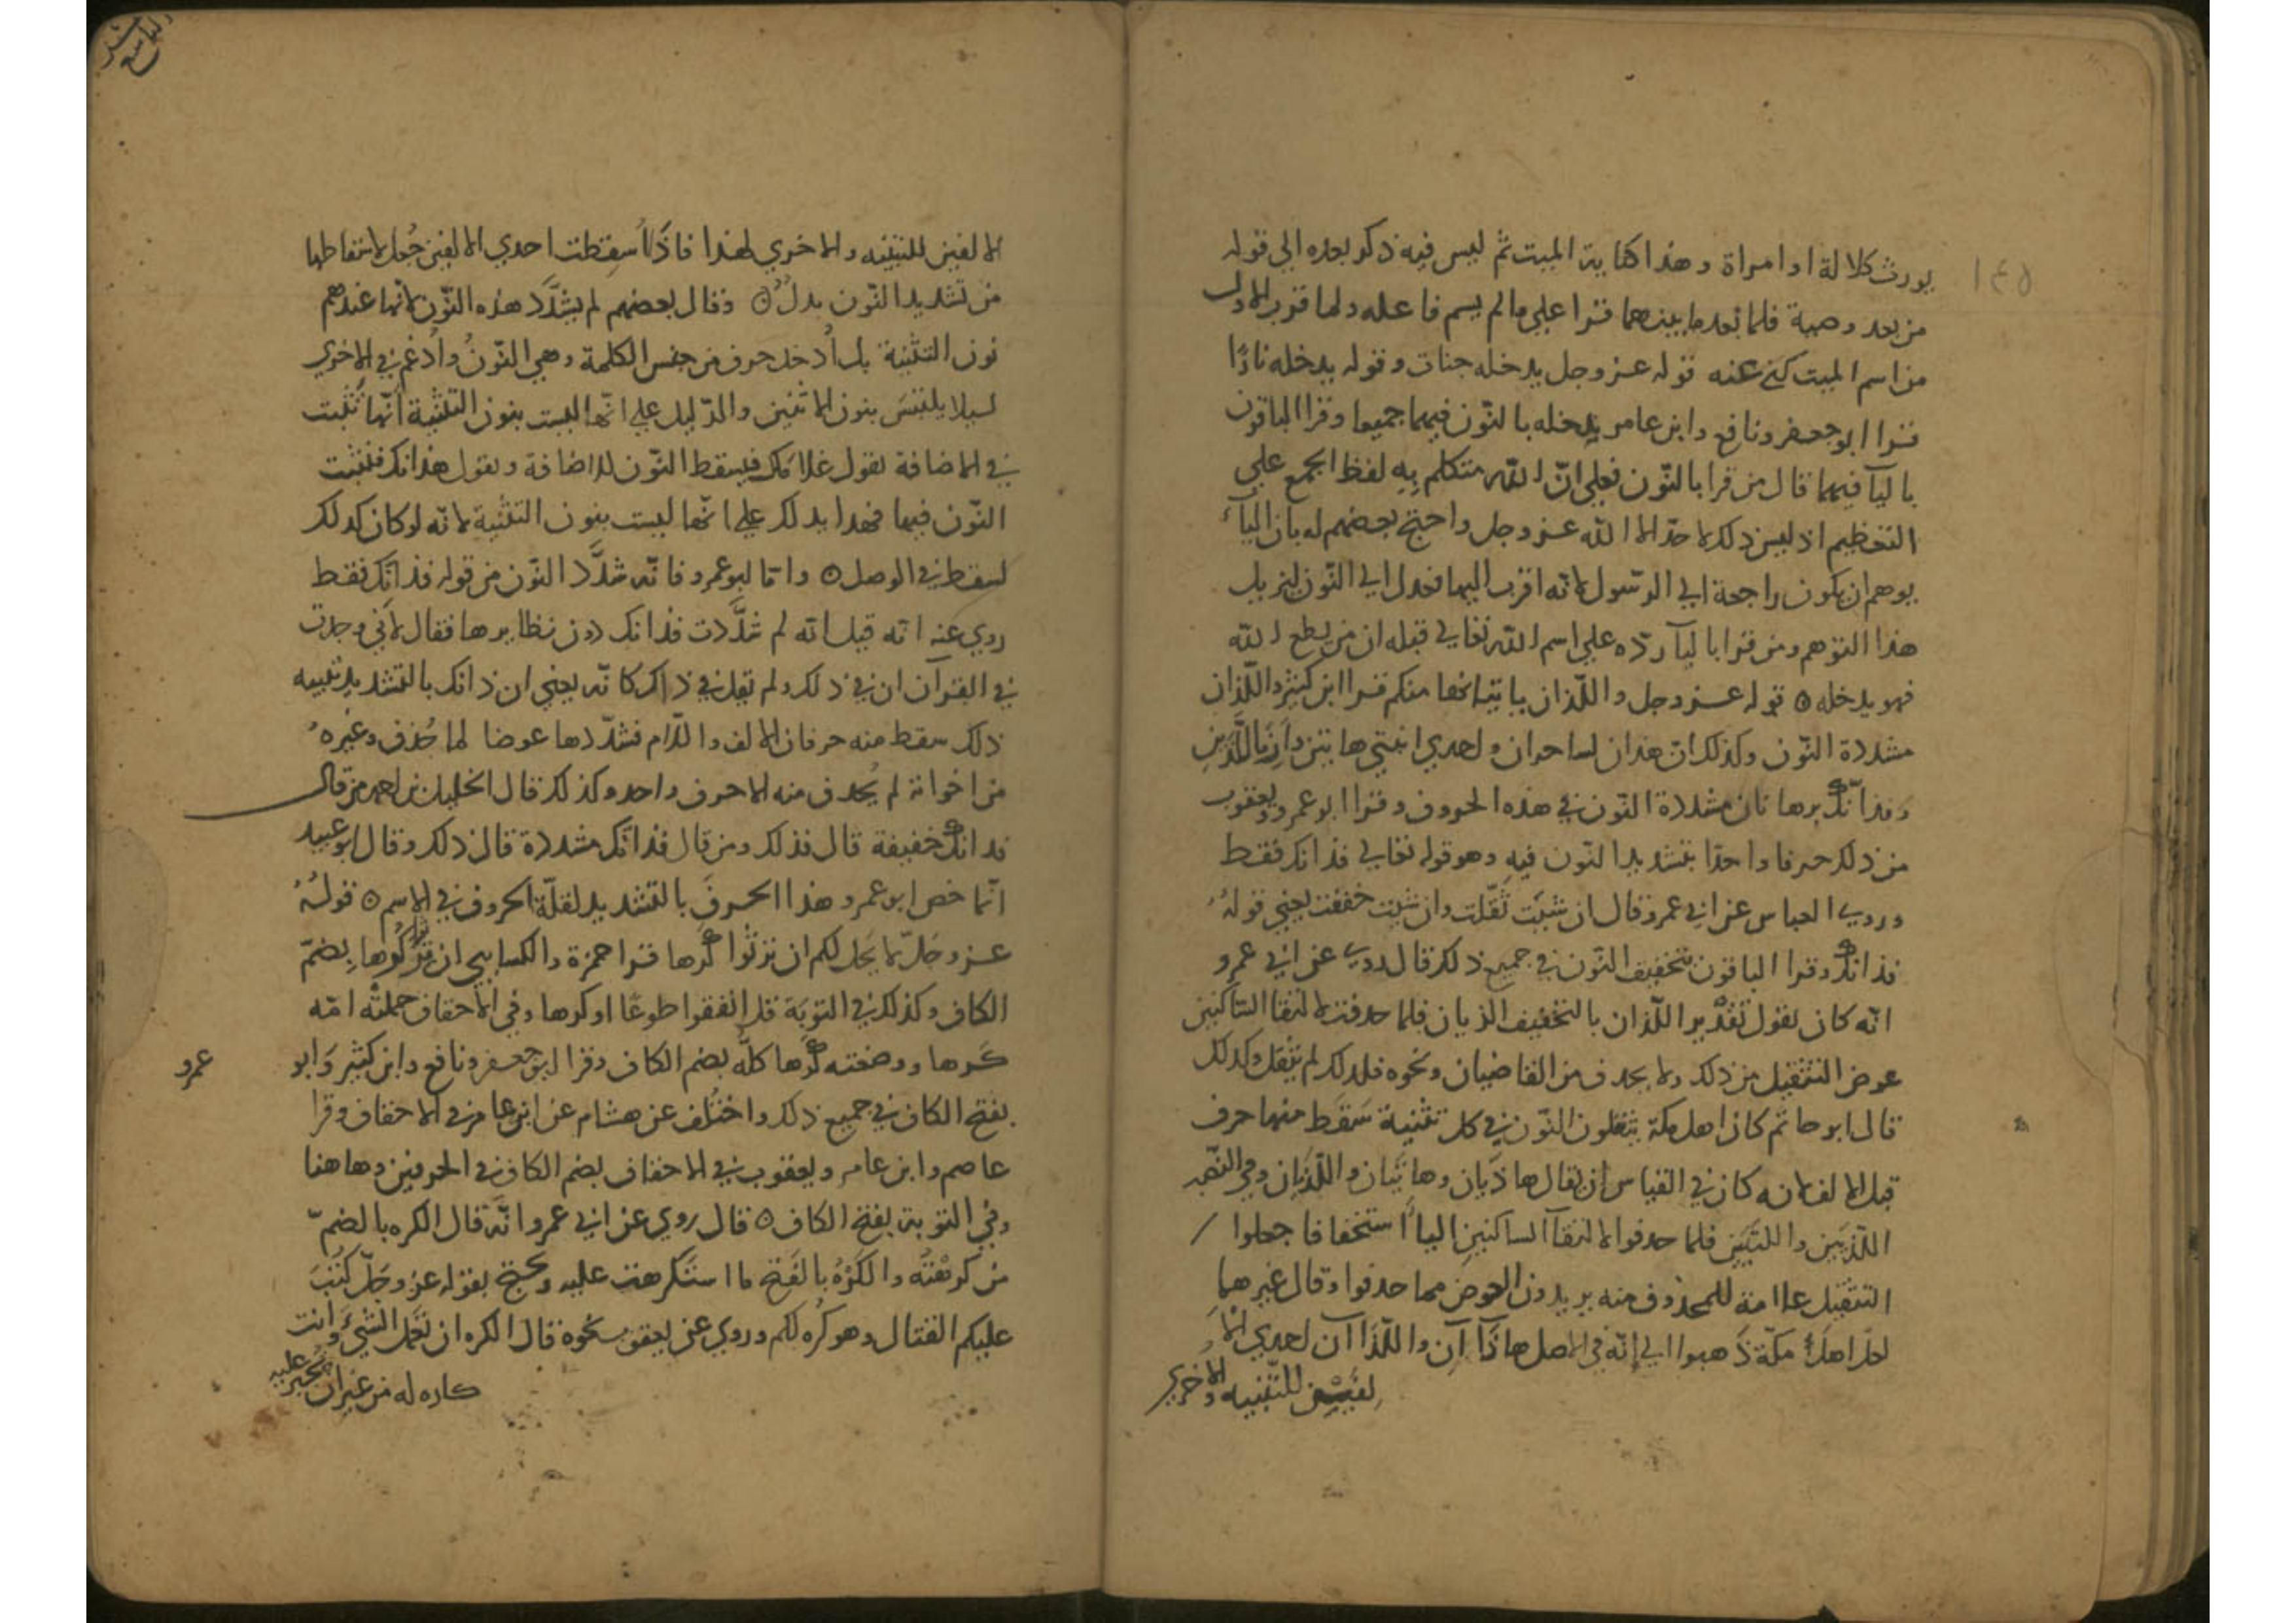 ١٤٥
يورث كلالة او امراة وهذا كناية الميت ثم ليس فيه ذكر بعده الي قوله
من بعد وصية فلما بعد ما بينهما قرا علي ما لم يسم فاعله ولما قرب الاول
من اسم الميت كني عنه قوله عز وجل يدخله جنات وقوله يدخله نارًا
قرا ابو جعفر ونافع وابن عامر ندخله بالنّون فيهما جميعا وقرا الباقون
باليآ فيهما قال من قرا بالنّون فعلي انّ الله متكلم بِهِ لفظ الجمع علي
التعظيم اذ ليس ذلك لاحد الا الله عز وجل واحتج بعضهم له بان اليآء
يوهم ان يكون راجعة الي الرّسول لانّه اقرب اليها فعدل الي النّون ليزيل
هذا التوهم ومن قرا باليآ ردّه علي اسم الله تعالي قبله ان من يطع الله
فهو يدخله ٥ قوله عز وجل واللّذان ياتيانها منكم قرا ابن كثير واللّذانّ
مشددة النّون وكذلك انّ هذان لساحران ولحدي ابنتي هاتين وارنا اللّذينِ
وفذانّك برهانان مشددة النّون في هذه الحروف وقرا ابو عمرو ويعقوب
من ذلك حرفا واحدًا بتشديد النّون فيهِ وهو قوله تعالي فذانك فقط
وروي العباس عن ابي عمرو قال ان شيت ثقّلت وان شيت خففت يعني قولهُ
فذانك وقرا الباقون بتخفيف النّون في جميع ذلك قال روي عن ابي عمرو
انّه كان يقول تقْدير اللّذان بالتخفيف الذيان فلما حدفت لالتقا السّاكنين
عوض التثقيل من ذلك ولا يحدف من القاضيان ونحوه فلدلك لم يثقل وكدلك
قال ابو حاتم كان اهل مكة يثقلون النّون في كل تثنية سَقط منها حرف
قبل الالف لانه كان في القياس ان يقال هاذَيان وهاتيَان واللّذَيان وفي النّصب
اللّذيَين واللتيَين فلما حدفوا لالتقآ الساكنينِ الياءَ استخفافا جعلوا
التثقيل علامة للمحذوف منه يريدون العوض مما حدفوا وقال غيرهما
لعلّ اهلُ مكّة ذَهبوا الي إنّه في الاصل هاذَا آن واللّذَا آن لحدي الا
لفين للتثنيه والاخري
التاسع عشر
الالفين للتثنيه والاخري لهذا فاذَا أسقطت احدي الالفين جُعل لاسقاطها
من تشديد النّون بدلٌ ٥ وقال بعضهم لم يشدَّد هذه النّون لانها عندهم
نون التثنية بل أُدخل حرف من جنس الكلمة وهي النّونُ وأُدغم في الاخري
ليلا يلتبسَ بنون الاثنين والدّليل علي انّها ليست بنون التثنية انّها تثبت
في الاضافة تقول غلامَاك فيسقط النّون للاضافة وتقول هذانك فتثبت
النّون فيها فهدا يدلك علي انّها ليست بنون التثنية لانّه لو كان كدلك
لسقط في الوصل ٥ وامّا ابو عمرو فانّه شدَّد النّون من قوله فذانّك فقط
روي عنه انه قيل له لم شدَّدت فذانك دون نظايرها فقال لانّي وجدت
في القرآن ان في ذلك ولم تقل في ذاك كانّه يعني ان ذانك بالتشديد تثنيه
ذلك سقط منه حرفان الالف واللّام فشدّدها عوضا لما حُذف وغيرهُ
من اخواته لم يُحدف منه الا حرف واحد وكذلك قال الخليل بن احمد من قال
فدانك خفيفة قال فذلك ومن قال فذانّك مشددة قال ذلك وقال ابو عبيد
انّما خص ابو عمرو هذا الحرفَ بالتشديد لقلّة الحروف في الاسم ٥ قولهُ
عز وجَلّ لا يَحل لكم ان ترثُوا كُرها قرا حمزة والكسايي ان ترثوا كُرها بضمّ
الكاف وكذلك في التوبَة قل انفقوا طوعًا او كرها وفي الاحقاف حملتْه امّه
كرها ووضعته كُرها كلّه بضم الكاف وقرا ابو جعفر ونافع وابن كثير وَابو عمرو
بفتح الكاف في جميع ذلك واختُلف عن هشام عن ابن عامر في الاحقاف وقرا
عاصم وابن عامر ويعقوب في الاحقاف بضم الكاف في الحرفين وهاهنا
وفي التوبة بفتح الكاف ٥ قال روي عن ابي عمرو انّه قال الكره بالضمّ
من كرهْتُه والكَرْهُ بالفتح ما استكرهت عليه ويحتج بقوله عز وجَلّ كُتبَ
عليكم القتال وهو كُره لكم وروي عن يعقوب نحوه قال الكره ان تعمل الشيءَ وانت
كاره له من غير ان تُجبر عليه